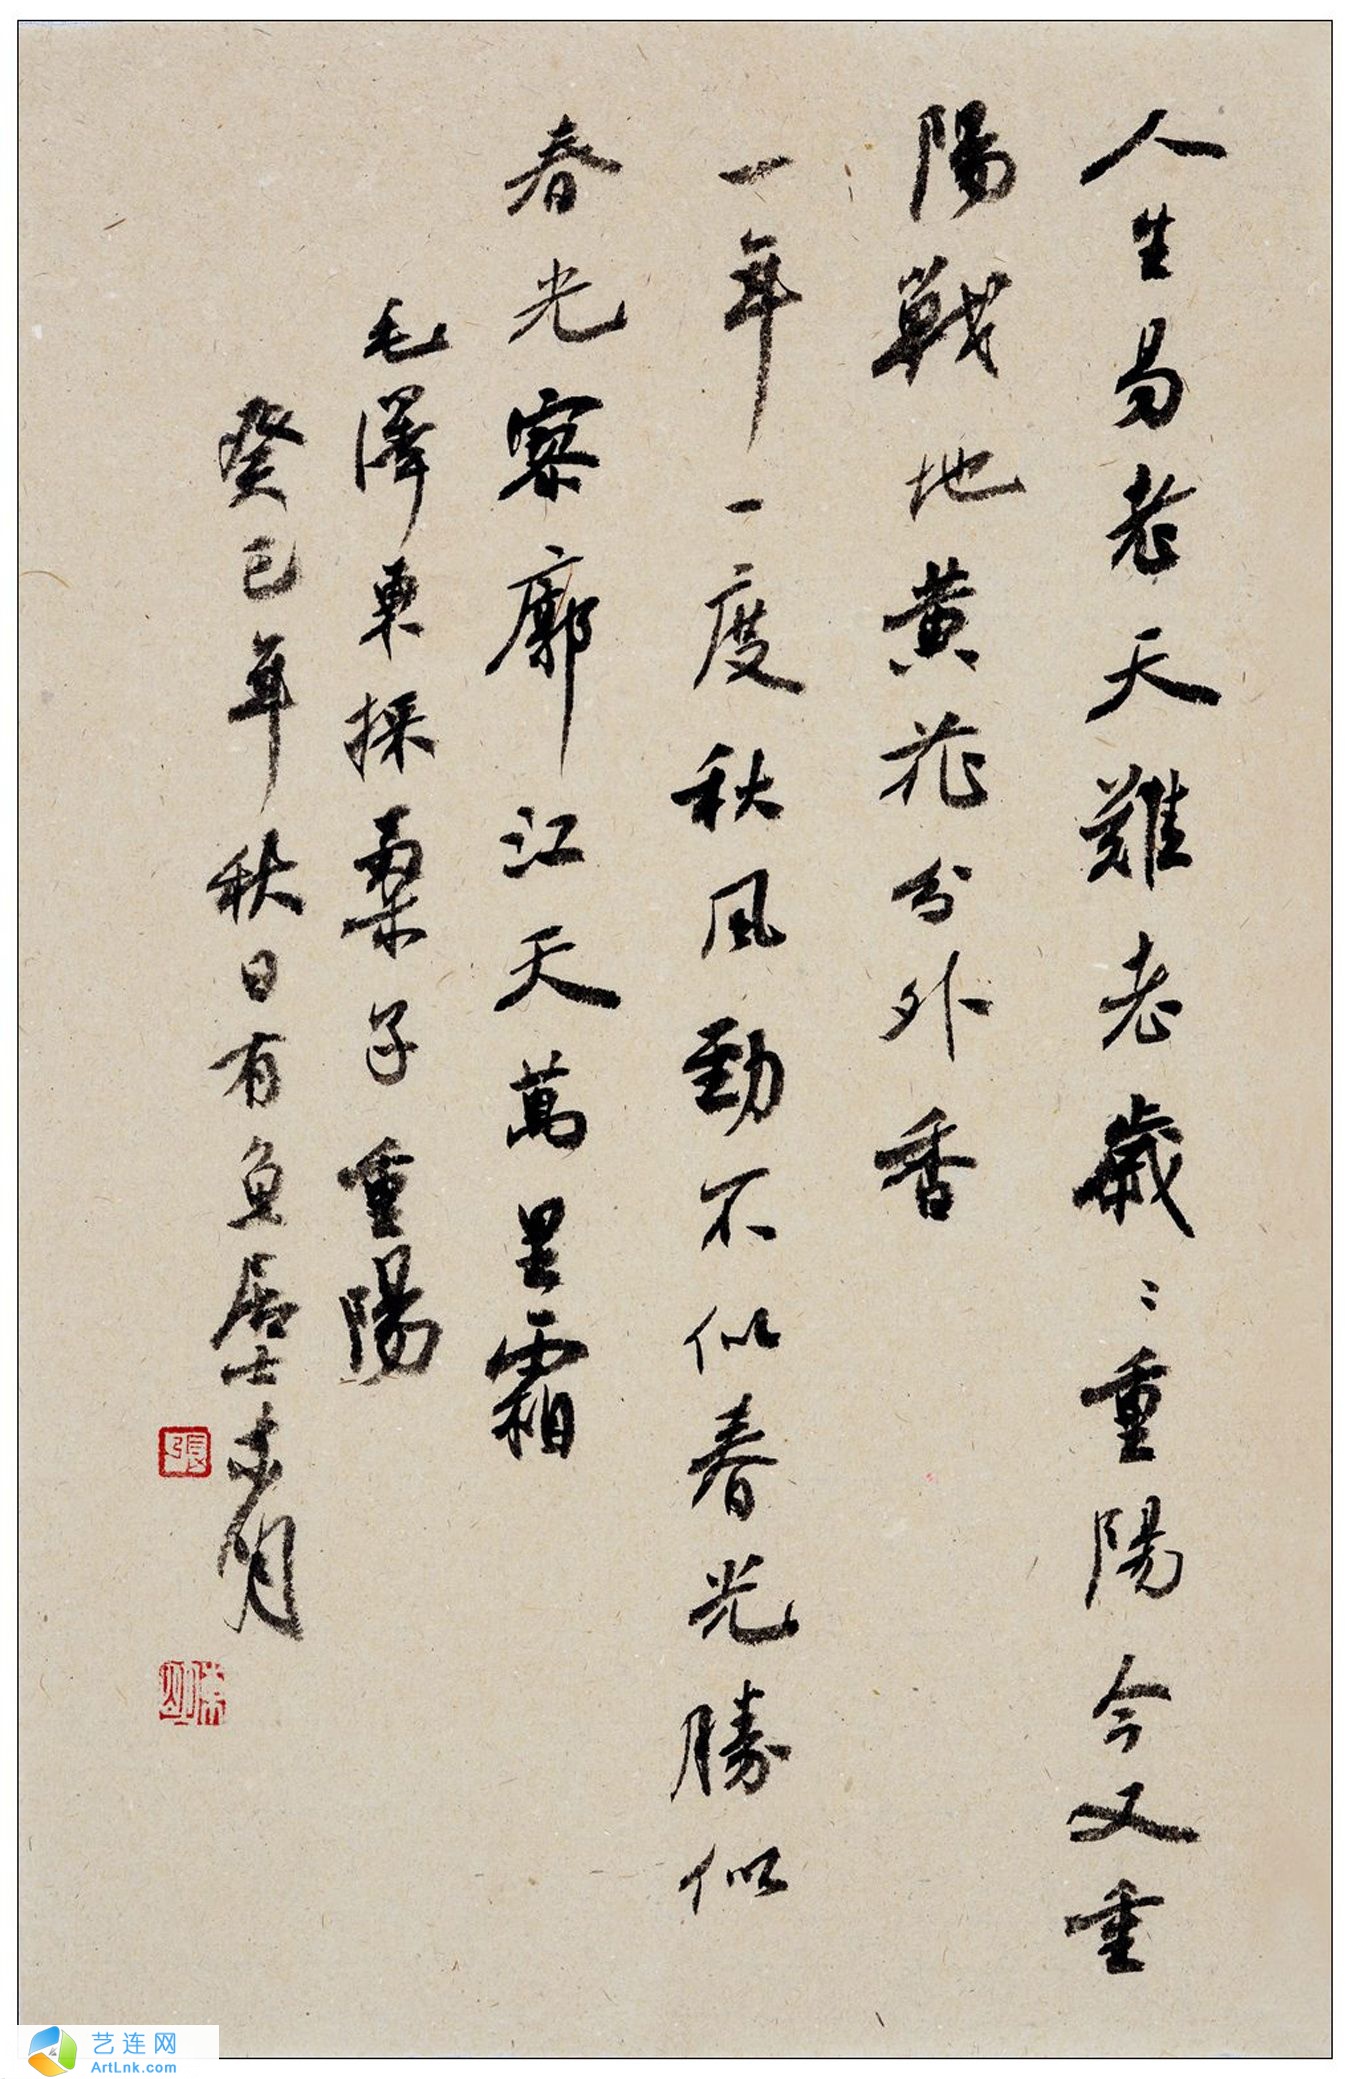 人生易老天難老歲〻重陽今又重
陽戰地黄花分外香
一年一度秋風勁不似春光勝似
春光寥廓江天萬里霜
毛澤東採桑子重陽
癸巳年秋日有魚居士
張
艺连网
ArtLnk.com